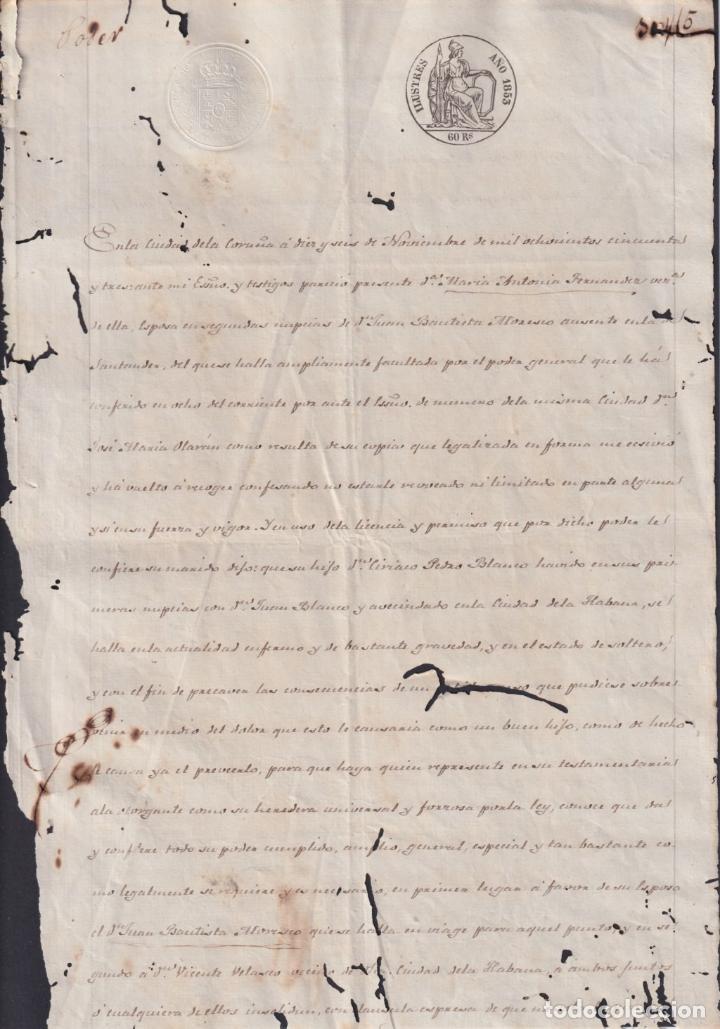 Poder
5
ILUSTRES AÑO 1853
60 Rs
En la Ciudad de la Coruña á diez y seis de Noviembre de mil ochocientos cincuenta
y tres: ante mi Essno. y testigos pareció presente d.ª Maria Antonia Fernandez vec.ª
de ella, Esposa en segundas nupcias de d.n Juan Bautista Moresco ausente en la de
Santander, del que se halla ampliamente facultada por el poder general que le há
conferido en ocho del corriente por ante el Essno. de numero de la misma Ciudad d.n
José Maria Olarán como resulta de su copia que legalizada en forma me ecsivió
y há vuelto á recoger confesando no estarle revocado ni limitado en parte alguna
y sí en su fuerza y vigor. Y en uso de la licencia y permiso que por dicho poder le
confiere su marido dijo: que su hijo d.n Ciriaco Pedro Blanco havido en sus pri-
meras nupcias con d.n Juan Blanco y avecindado en la Ciudad de la Habana, se
halla en la actualidad enfermo y de bastante gravedad, y en el estado de soltero,
y con el fin de precaver las consecuencias de un que pudiese sobre
venir en medio del dolor que esto le causaria como un buen hijo, como de hecho
le causa ya el preveerlo, para que haya quien represente en su testamentaria
a la otorgante como su heredera universal y forzosa por la ley, conoce que da
y confiere todo su poder cumplido, amplio, general, especial y tan bastante co-
mo legalmente se requiere y es necesario, en primer lugar á favor de su Esposo
el d.n Juan Bautista Moresco que se halla en viage para aquel punto, y en se-
gundo á d.n Vicente Velasco vecino de la Ciudad de la Habana, á ambos juntos
ó cualquiera de ellos insolidun, con clausula espresa de que
todocoleccion.net